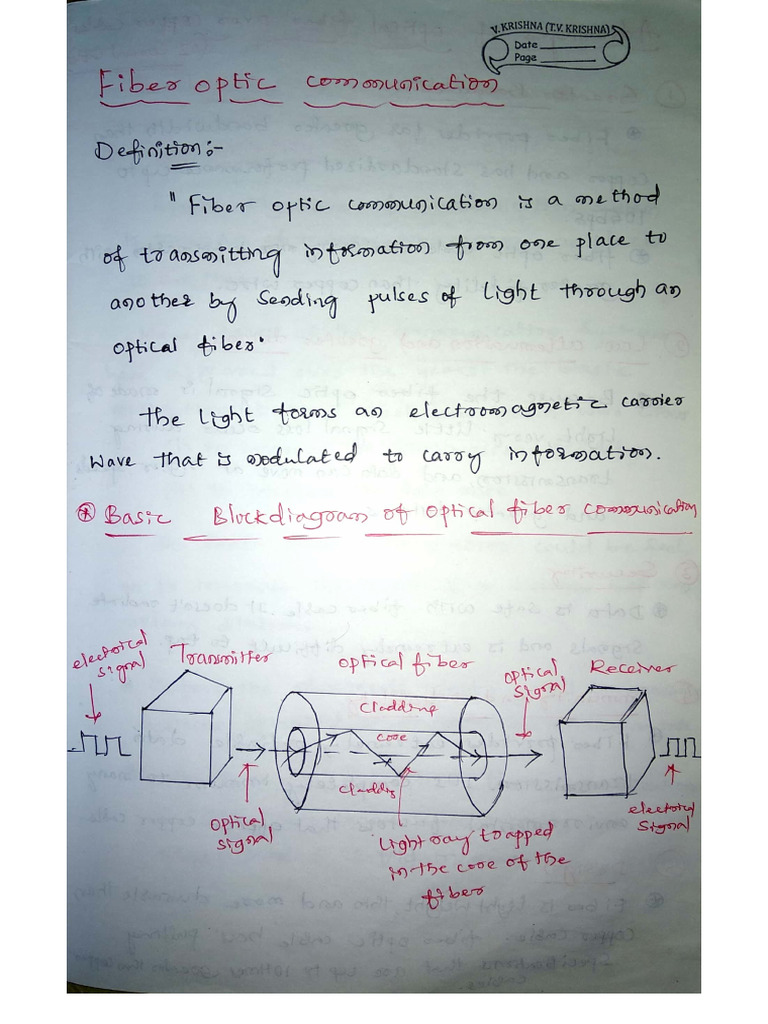 V. KRISHNA (T.V. KRISHNA)
Date
Page
Fiber optic communication
Definition:-
"Fiber optic communication is a method
of transmitting information from one place to
another by sending pulses of light through an
optical fiber.
The light forms an electromagnetic carrier
wave that is modulated to carry information.
* Basic Blockdiagram of optical fiber communication
electrical
signal
Transmitter
optical fiber
optical
signal
Receiver
cladding
core
cladding
optical
signal
Light ray trapped
in the core of the
fiber
electrical
signal